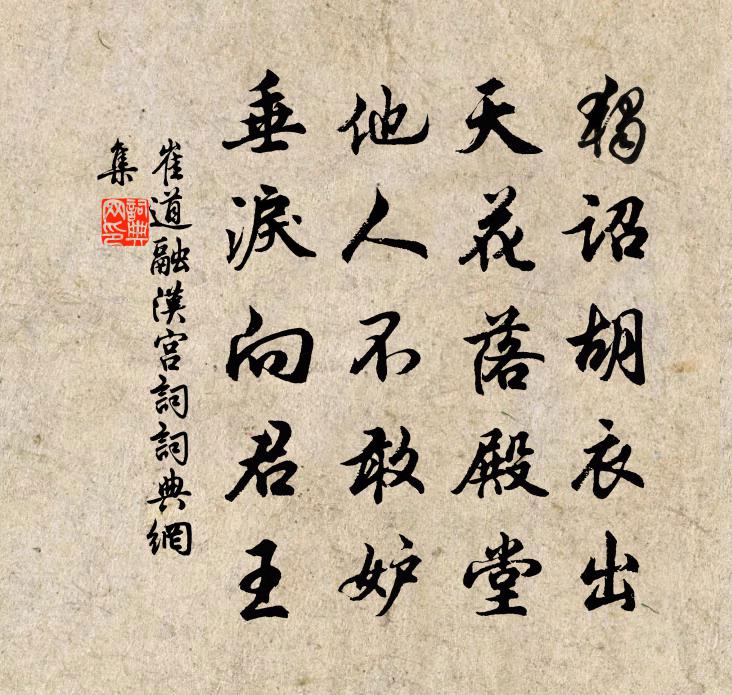 獨詔胡衣出
天花落殿堂
他人不敢妒
垂淚向君王
崔道融漢宮詞詞典網
集
詞典
网印